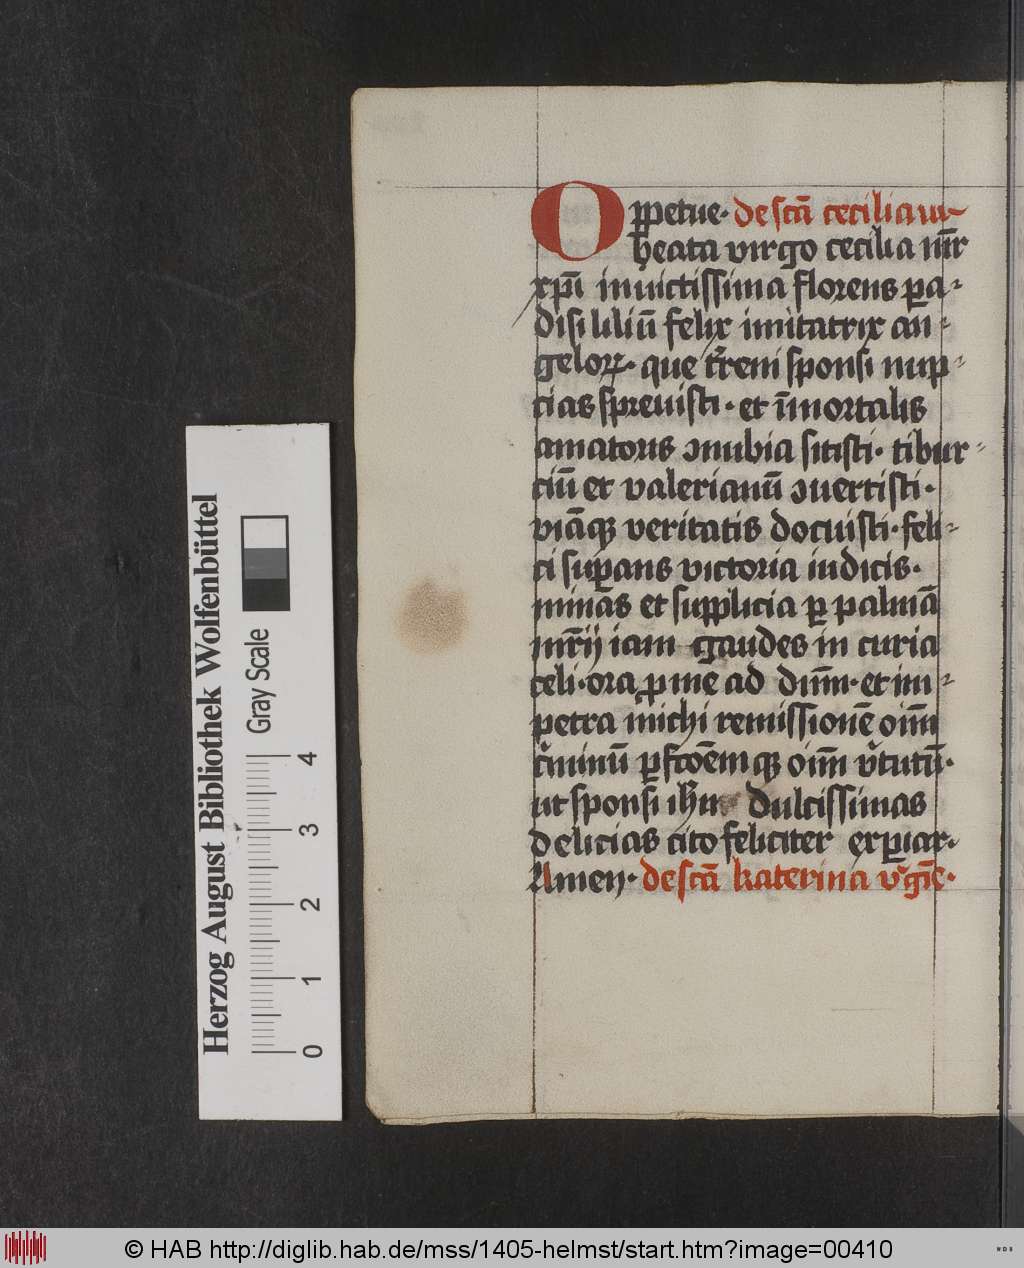 ppetue· de scā cecilia uir
O beata virgo cecilia mr̄
xp̄i invictissima florens ꝑa-
disi liliū felix imitatrix an-
geloꝝ· que t̄reni sponsi nup-
cias sprevisti· et īmortalis
amatoris ꝯnubia sitisti· tibur-
ciū et valerianū ꝯuertisti·
viāqꝫ veritatis docuisti· feli-
ci suꝑans victoria iudicis·
minās et supplicia ꝑ palmā
mr̄ij iam gaudes in curia
celi· ora ꝓ me ad dn̄m· et im-
petra michi remissionē oīm
c̄minū ꝑfcōem qꝫ oīm v̄tutū·
ut sponsi ih̄u dulcissimas
delicias cito feliciter exꝑiar·
Amen· de scā katerina v̄gīe·
Herzog August Bibliothek Wolfenbüttel
Gray Scale
0 1 2 3 4
© HAB http://diglib.hab.de/mss/1405-helmst/start.htm?image=00410